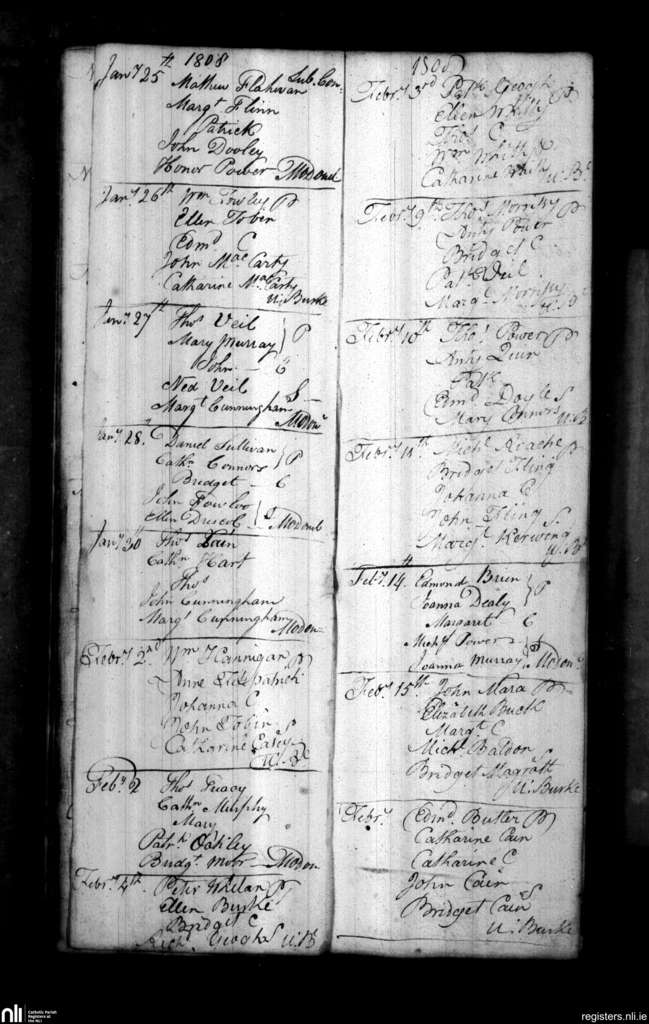 1808
Janry 25th
Mathew Flahivan Sub. Con:
Margt Flinn
Patrick
John Dooley
Honor Power McDonel
Janry 26th Wm P
Ellen Tobin
Edmd C
John MacCarty
Catharine McCarty
U: Burke
Janry 27th Thos Veil
Mary Murray } P
John — C
Ned Veil
Margt Cunningham S
McDonl
Janry 28th Daniel Sullivan
Cathn Connors } P
Bridget — C
John
Ellen Driscol } S McDonel
Janry 30th Thos
Cathn Hart
Thos
John Cunningham
Margt Cunningham
McDon
Febry 2nd Wm Hannigan P
Anne Fitzpatrick
Johanna C
John Tobin S
Catharine Casey
U: B
Feby 2 Thos
Cathn Murphy
Mary
Patrk Oakley
Bridgt Moor McDon
Febry 4th Peter Whelan P
Ellen Burke
Bridget C
Richd Geogh S U: B
1808
Febry 3rd Patk Geogh
Ellen Whitty P
Thos C
Wm White S
Catharine White
U: B
Febry 9th Thos Morrisy P
Ansty Power
Bridget C
Patk
Margt Morrisy
Febry 10th Thos Power P
Ansty
Patk
Edmd Doyle S
Mary Connors U: B
Febry 11th Michl Roache P
Bridget Fling
Johanna C
John Fling S
Margt Kerwing
U: B
Feby 14th Edmond Brien
Joanna Dealy } P
Margaret C
Michl Power
Joanna Murray } S McDon
Feby 15th John Mara P
Elizabeth Buck
Margt C
Michl Baldon S
Bridget Magrath
U: Burke
Febry Edmd Butler P
Catharine Cain
Catharine C
John Cain
Bridget Cain S
U: Burke
nli
Catholic Parish
Registers at
the NLI
registers.nli.ie